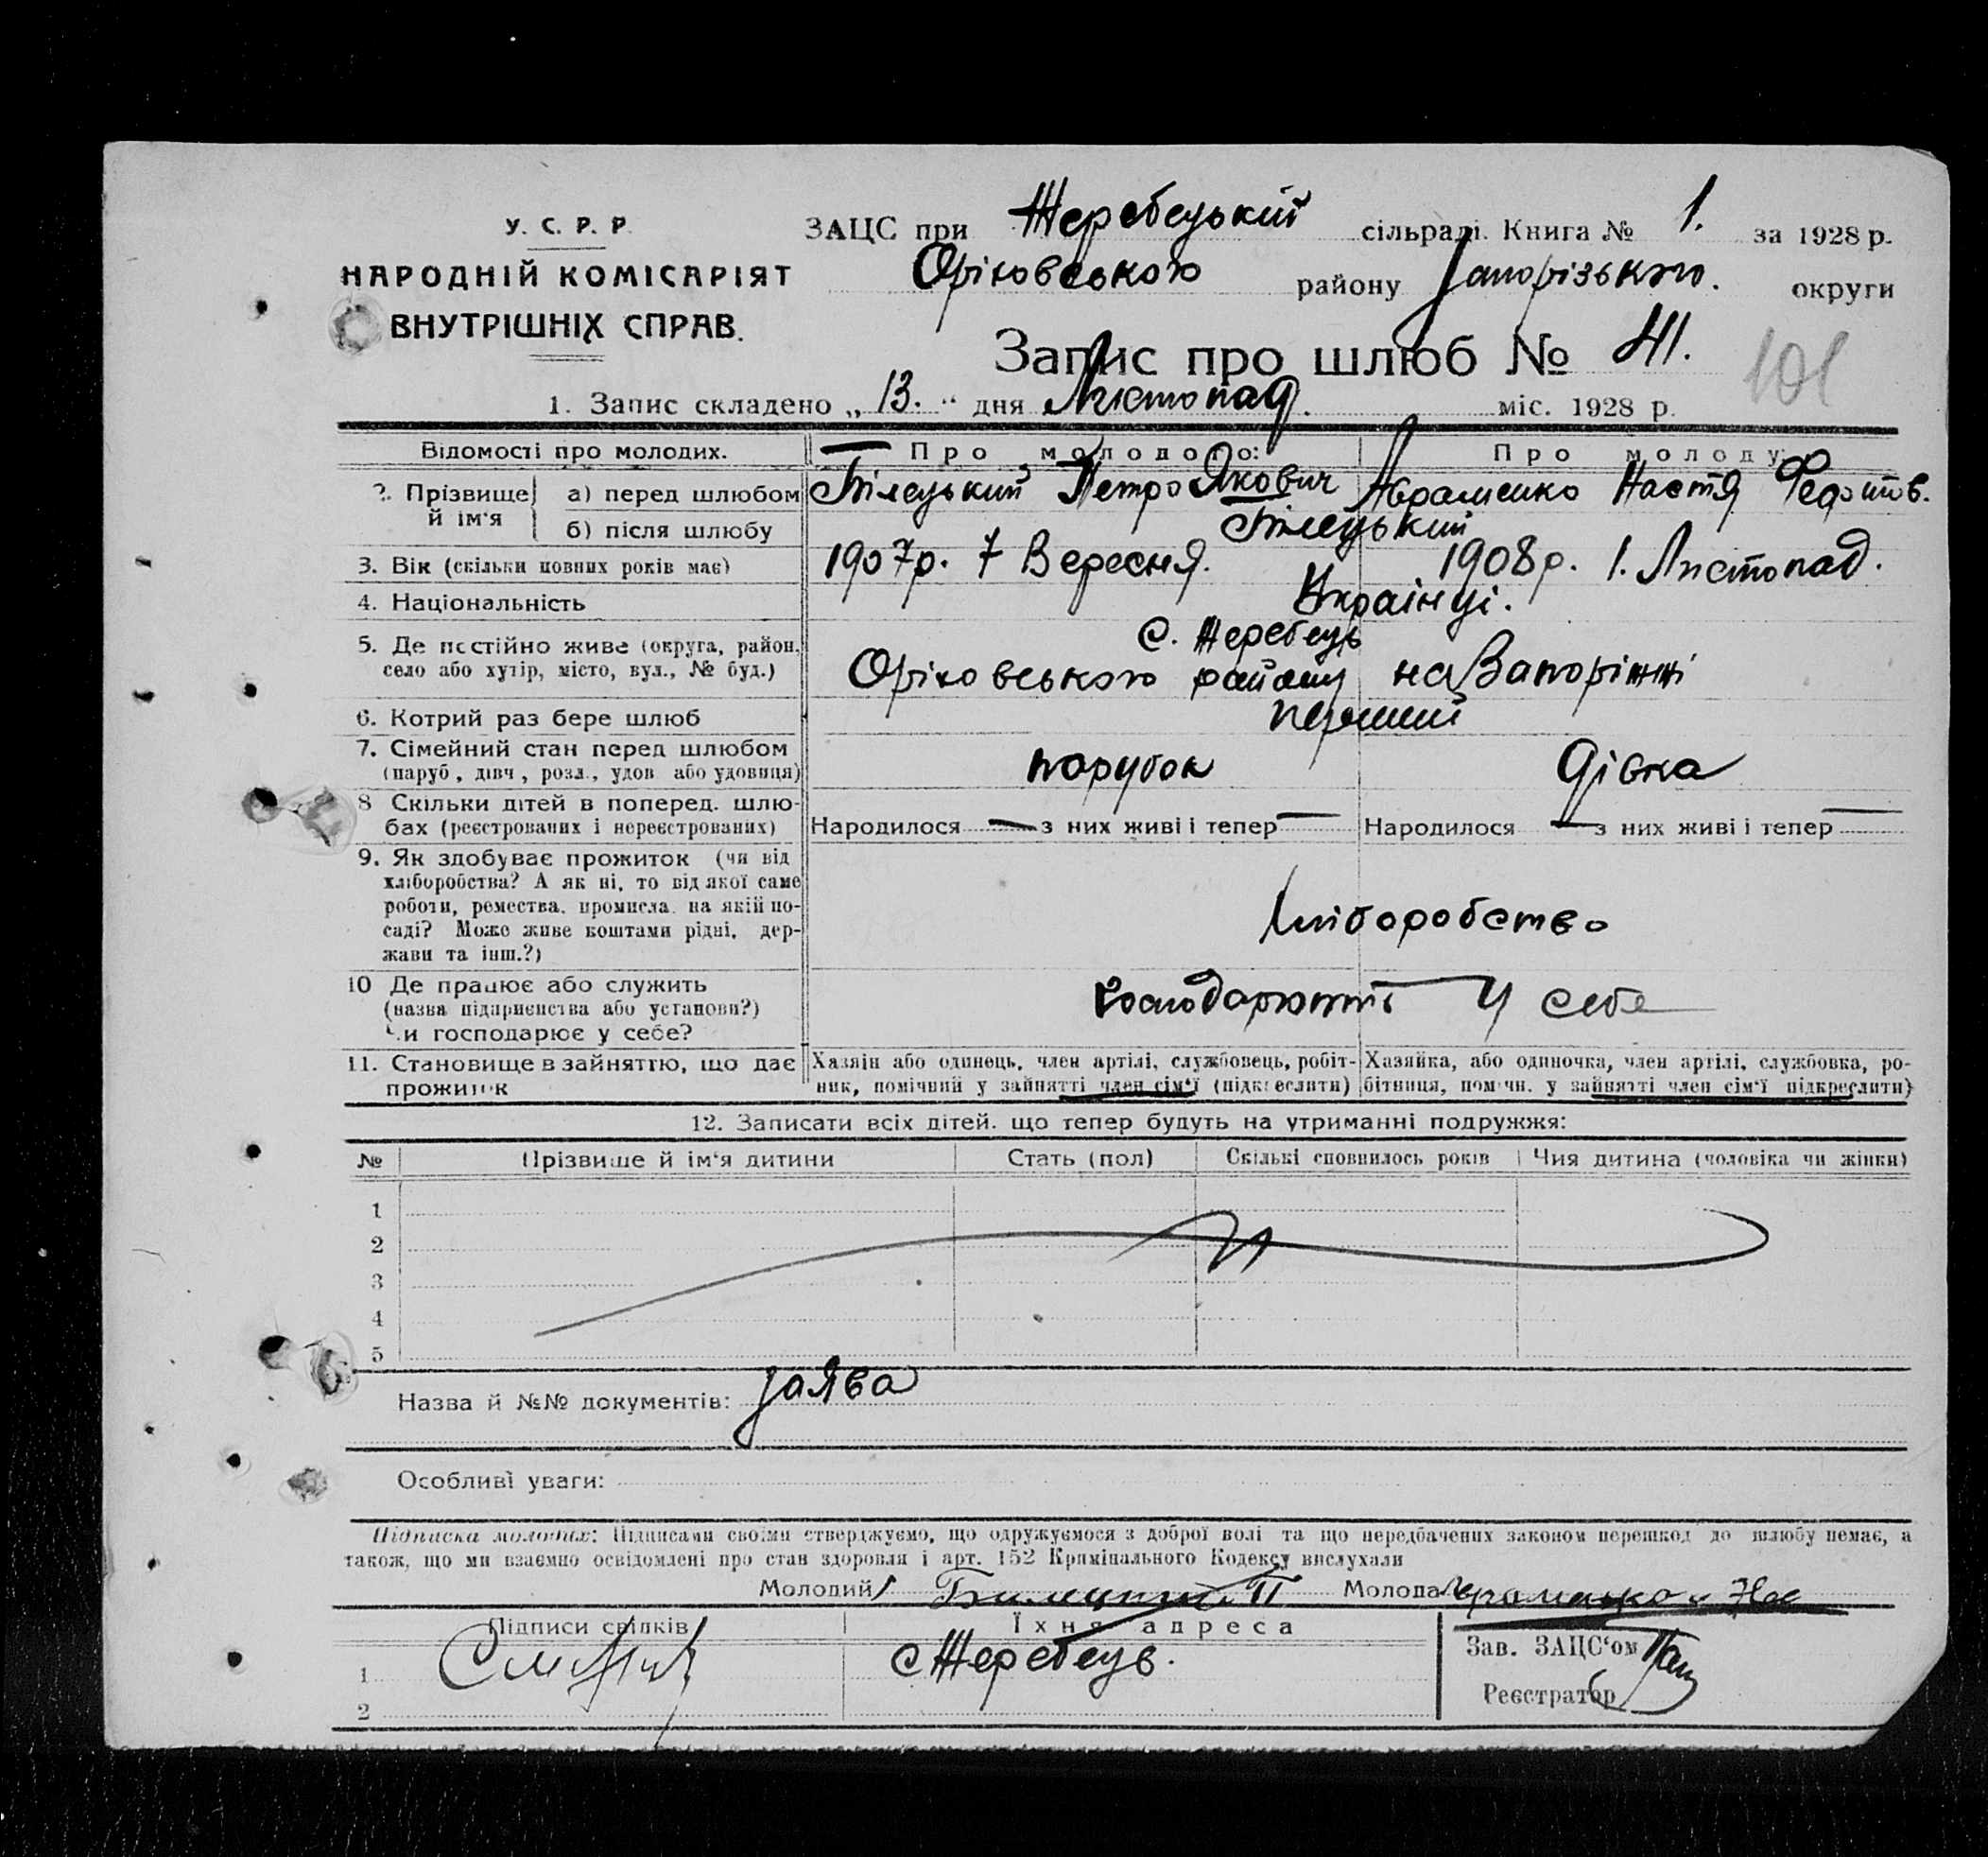 У. С. Р. Р.
НАРОДНІЙ КОМІСАРІЯТ
ВНУТРІШНІХ СПРАВ.
ЗАЦС при Жеребецький сільраді. Книга № 1. за 1928 р.
Оріховського району Запорізького. округи
Запис про шлюб № 41.
101
1. Запис складено „13.“ дня Листопад. міс. 1928 р.
Відомості про молодих. Про молодого: Про молоду:
2. Прізвище й ім'я а) перед шлюбом Білецький Петро Якович Авраменко Настя Федотов.
б) після шлюбу Білецький
3. Вік (скільки повних років має) 1907р. 7 Вересня. 1908р. 1. Листопад.
4. Національність Українці.
5. Де постійно живе (округа, район, село або хутір, місто, вул., № буд.) с. Жеребець
Оріховського району на Запоріжжі
6. Котрий раз бере шлюб перший
7. Сімейний стан перед шлюбом парубок дівка
(паруб., дівч., розл., удов. або удовиця)
8 Скільки дітей в поперед. шлю-
бах (реєстрованих і нереєстрованих) Народилося — з них живі і тепер — Народилося — з них живі і тепер —
9. Як здобуває прожиток (чи від
хліборобства? А як ні, то від якої саме
роботи, ремества, промисла, на якій по-
саді? Може живе коштами рідні, дер-
жави та інш.?) Хліборобство
10 Де працює або служить
(назва підприємства або установи?) господарюють у себе
Чи господарює у себе?
11. Становище в зайняттю, що дає
прожиток
Хазяін або одинець, член артілі, службовець, робіт-
ник, помічний у зайнятті член сім'ї (підкреслити)
Хазяйка, або одиночка, член артілі, службовка, ро-
бітниця, помічн. у зайнятті член сім'ї підкреслити)
12. Записати всіх дітей. що тепер будуть на утриманні подружжя:
№ Прізвище й ім'я дитини Стать (пол) Скількі сповнилось років Чия дитина (чоловіка чи жінки)
1
2
3
4
5
Назва й №№ документів: заява
Особливі уваги:
Підписка молодих: Підписами своїми стверджуємо, що одружуємося з доброї волі та що передбачених законом перешкод до шлюбу немає, а
також, що ми взаємно освідомлені про стан здоровля і арт. 152 Кримінального Кодексу вислухали
Молодий Білецкий П Молода
Підписи свідків Їхня адреса
Зав. ЗАЦС'ом
1 с Жеребець.
Реєстратор
2